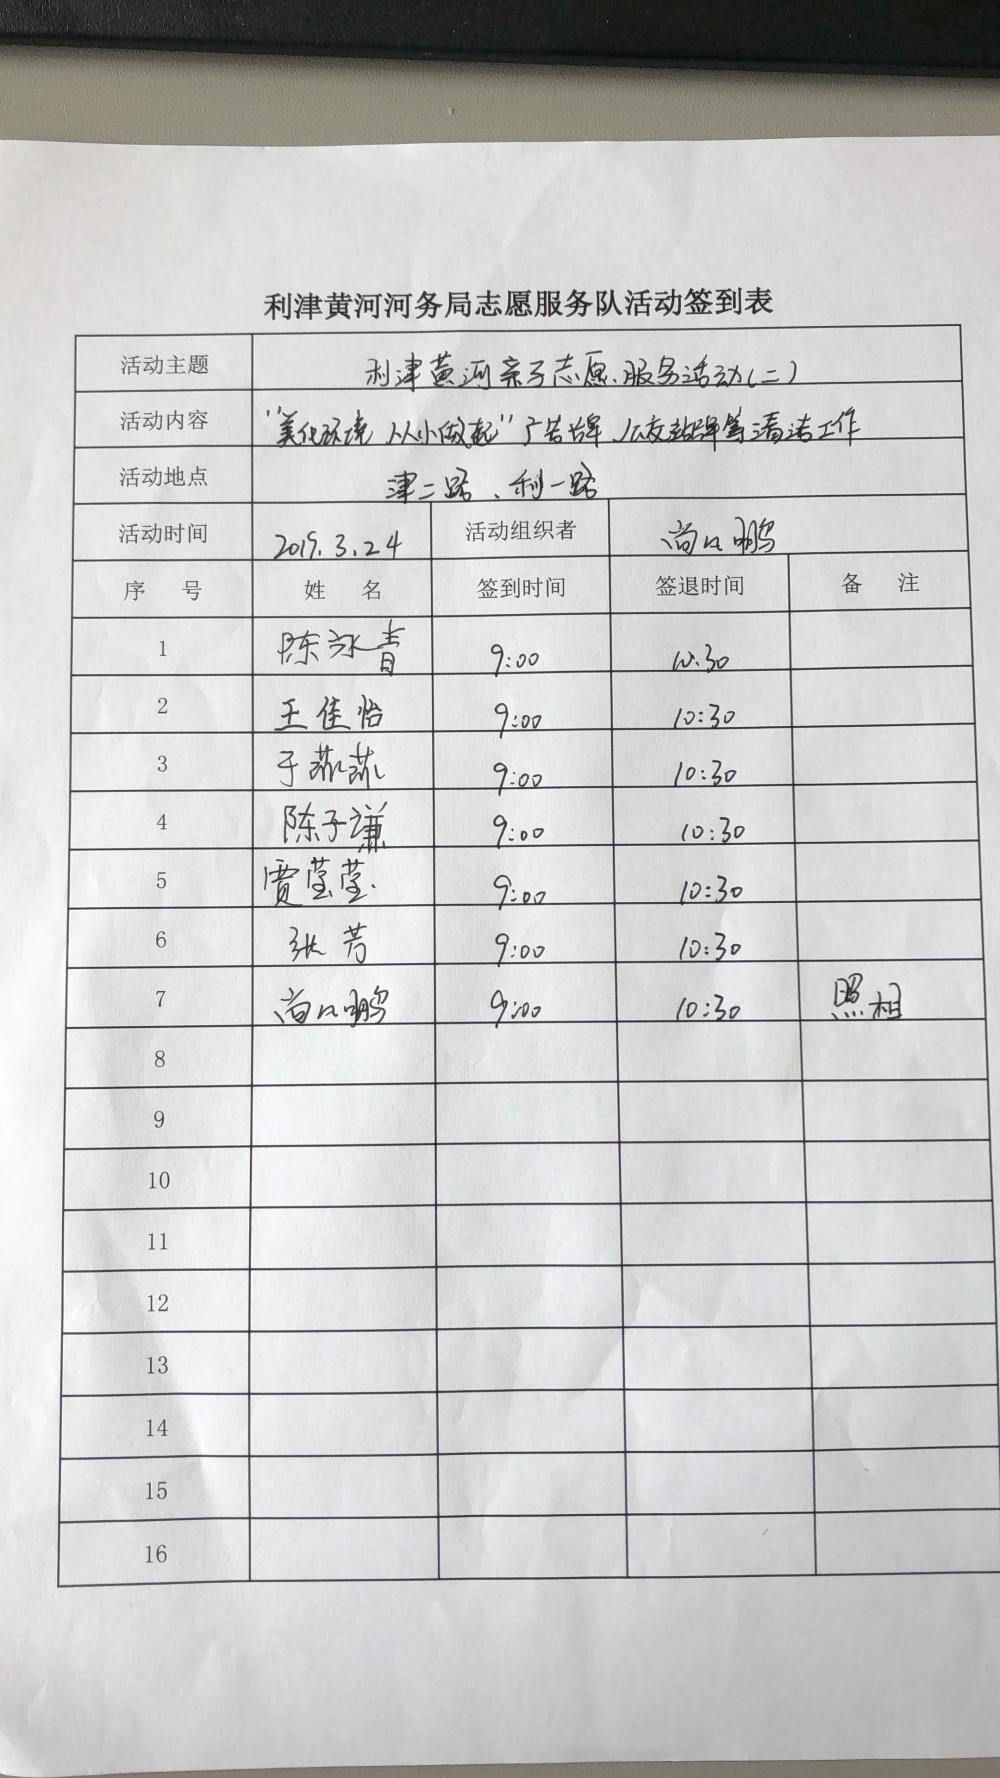 利津黄河河务局志愿服务队活动签到表
活动主题 利津黄河亲子志愿服务活动(二)
活动内容 "美化环境 从小做起"广告牌、公交站牌等清洁工作
活动地点 津二路、利一路
活动时间 2019.3.24 活动组织者 鹏
序 号 姓 名 签到时间 签退时间 备 注
1 陈永青 9:00 10:30
2 王佳怡 9:00 10:30
3 于燕燕 9:00 10:30
4 陈子谦 9:00 10:30
5 贾莹莹 9:00 10:30
6 张芳 9:00 10:30
7 鹏 9:00 10:30 照相
8
9
10
11
12
13
14
15
16